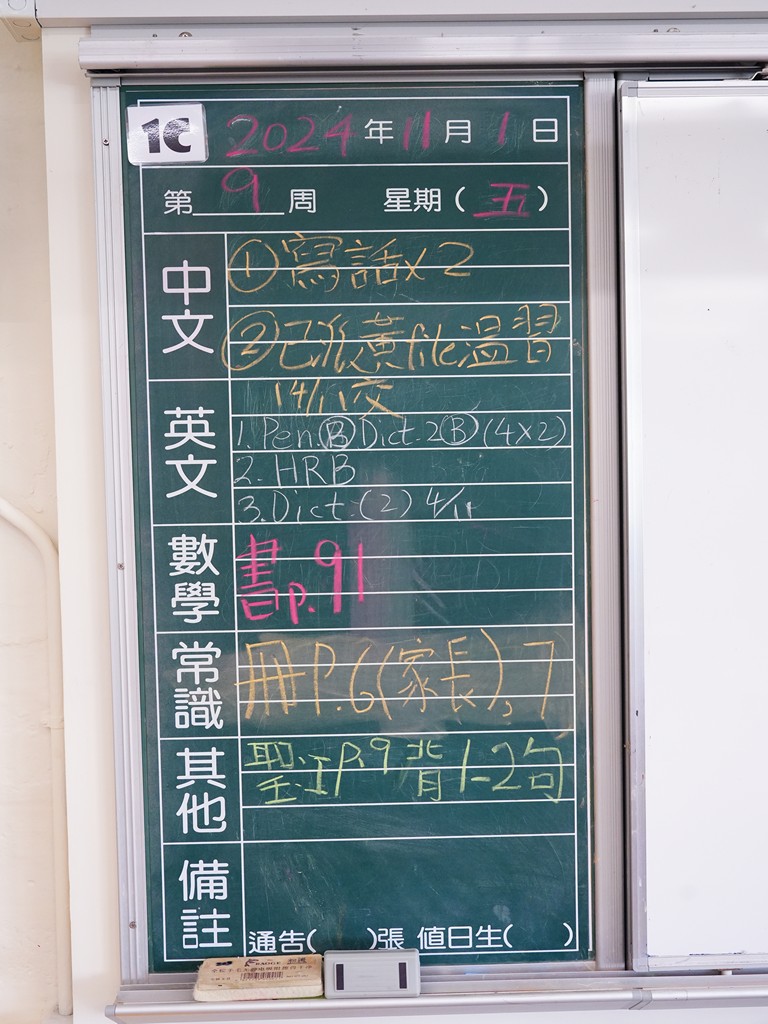 1C 2024年11月1日
第9周 星期(五)
中文
①寫話x2
②已派黃file溫習
14/11交
英文
1. Pen.Ⓑ Dict. 2Ⓑ (4x2)
2. HRB
3. Dict. (2) 4/11
數學
書p.91
常識
冊P.6(家長), 7
其他
聖:工P.9背1-2句
備註
通告( )張 值日生( )